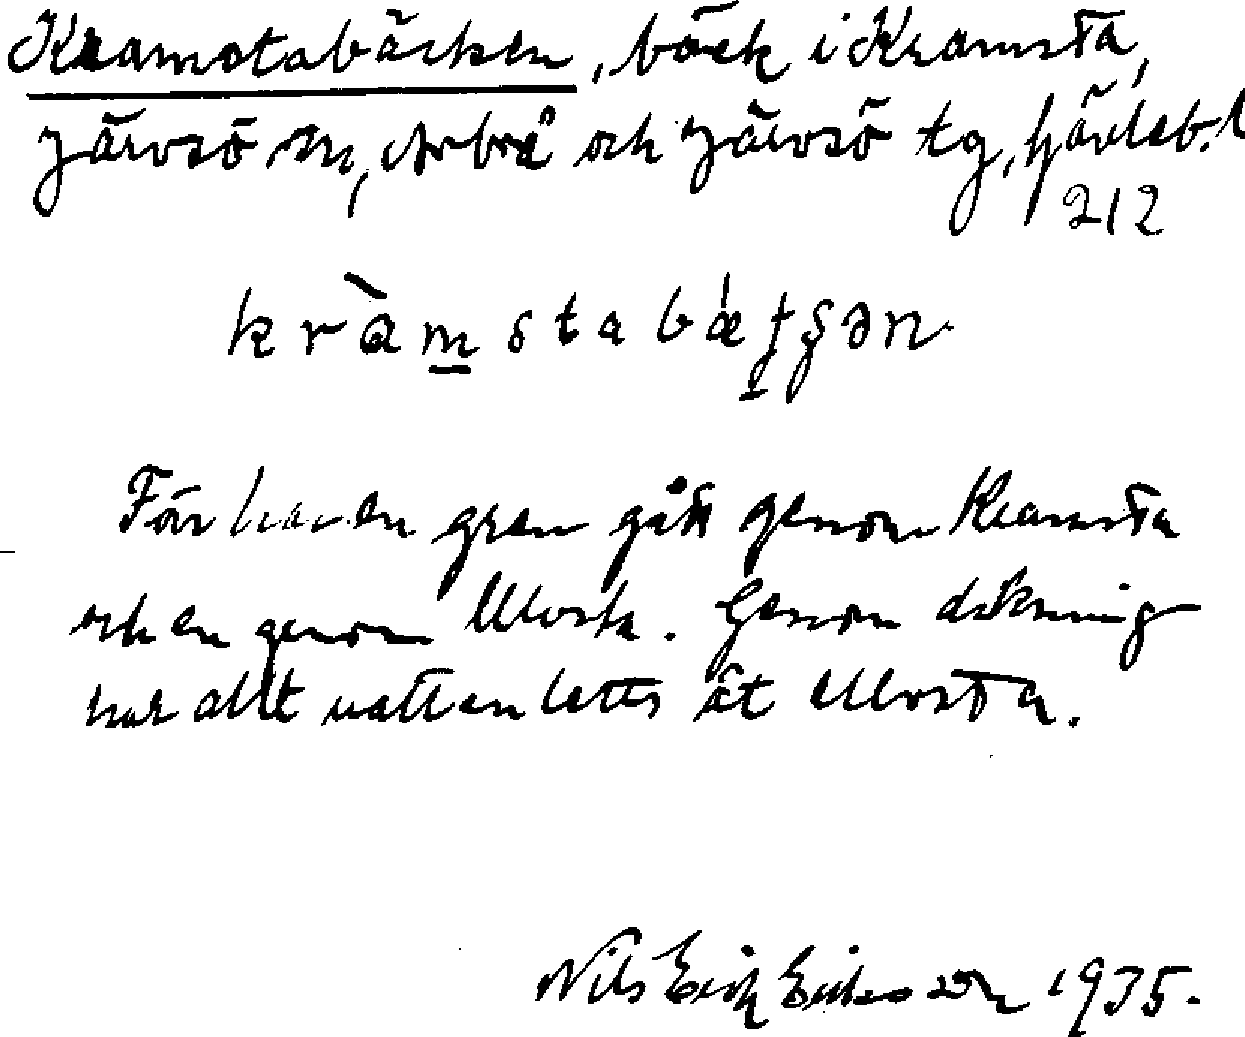 Kramstabäcken, bäck i Kramsta,
Järvsö sn, Arbrå och Järvsö tg, Gävleb. l
212
kràmstabǽʈʂən
Förr har en gren gått genom Kramsta
och en genom Ulvsta. Genom dikning
har allt vatten letts åt Ullvsta.
Nils Erik Eriksson 1935.